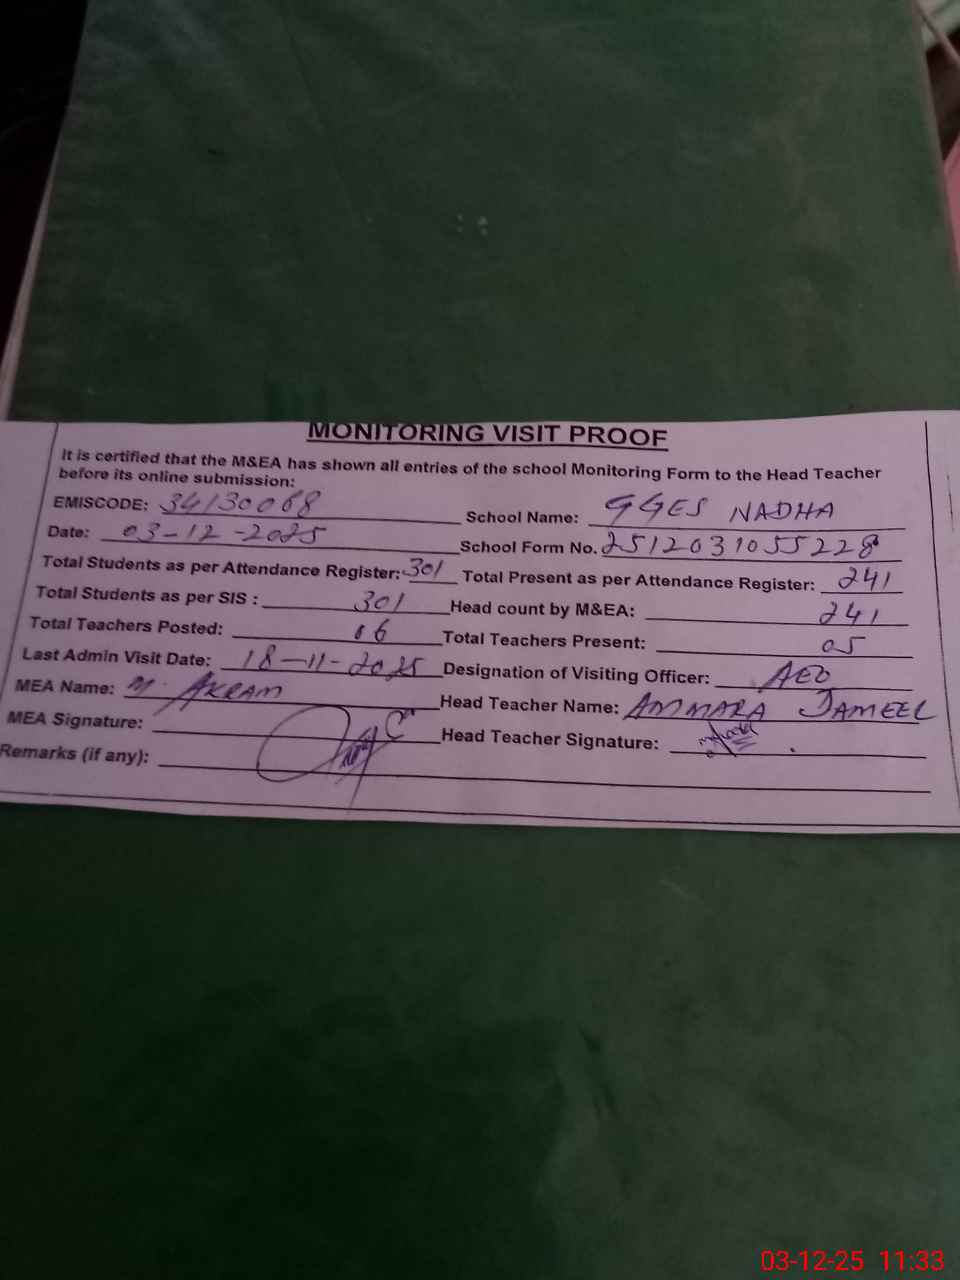 MONITORING VISIT PROOF
It is certified that the M&EA has shown all entries of the school Monitoring Form to the Head Teacher
before its online submission:
EMISCODE: 34130068 School Name: GGES NADHA
Date: 03-12-2025 School Form No. 2512031055228
Total Students as per Attendance Register: 301 Total Present as per Attendance Register: 241
Total Students as per SIS : 301 Head count by M&EA: 241
Total Teachers Posted: 06 Total Teachers Present: 05
Last Admin Visit Date: 18-11-2025 Designation of Visiting Officer: AEO
MEA Name: M. AKRAM Head Teacher Name: AMMARA JAMEEL
MEA Signature: Head Teacher Signature:
Remarks (if any):
03-12-25 11:33